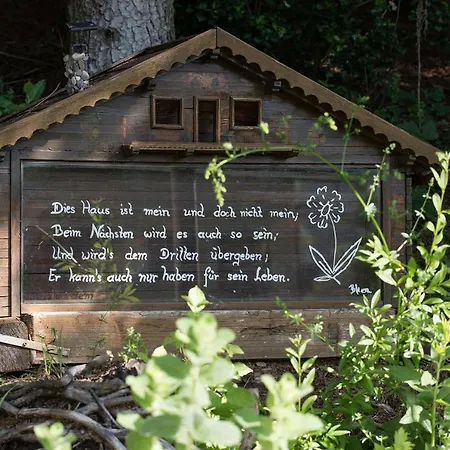 Dies Haus ist mein und doch nicht mein,
Beim Nächsten wird es auch so sein,
Und wird's dem Dritten übergeben;
Er kann's auch nur haben für sein Leben.